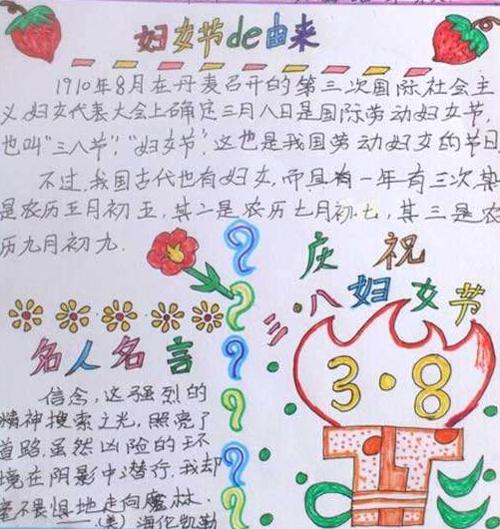 妇女节de由来
1910年8月在丹麦召开的第三次国际社会主
义妇女代表大会上确定三月八日是国际劳动妇女节,
也叫"三八节"."妇女节".这也是我国劳动妇女的节日
不过,我国古代也有妇女,而且有一年有三次,其
是农历五月初五,其二是农历七月初七,其三是农
历九月初九.
庆祝
三八妇女节
3·8
名人名言
信念,这强烈的
精神搜索之光,照亮了
道路,虽然凶险的环
境在阴影中潜行,我却
毫不畏惧地走向魔林.
——(美)海伦凯勒